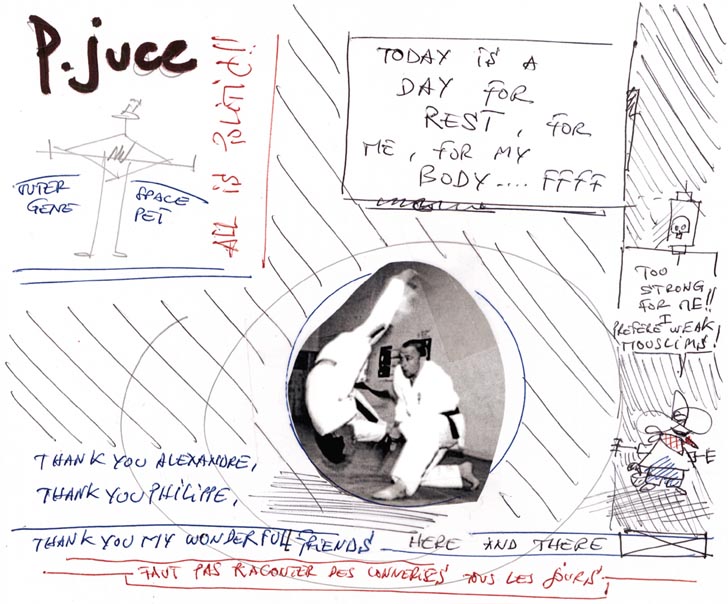 P.juce
ALL is POLITIC!!
GENE
SPACE
PET
TODAY iS A
DAY FOR
REST, FOR
ME, FOR MY
BODY.... FFFF
TOO
STRONG
FOR ME!!
I
PREFERE WEAK
MOUSLIMS!
THANK YOU ALEXANDRE,
THANK YOU PHILIPPE,
THANK YOU MY WONDERFULL FRIENDS HERE AND THERE
FAUT PAS RACONTER DES CONNERIES TOUS LES JOURS